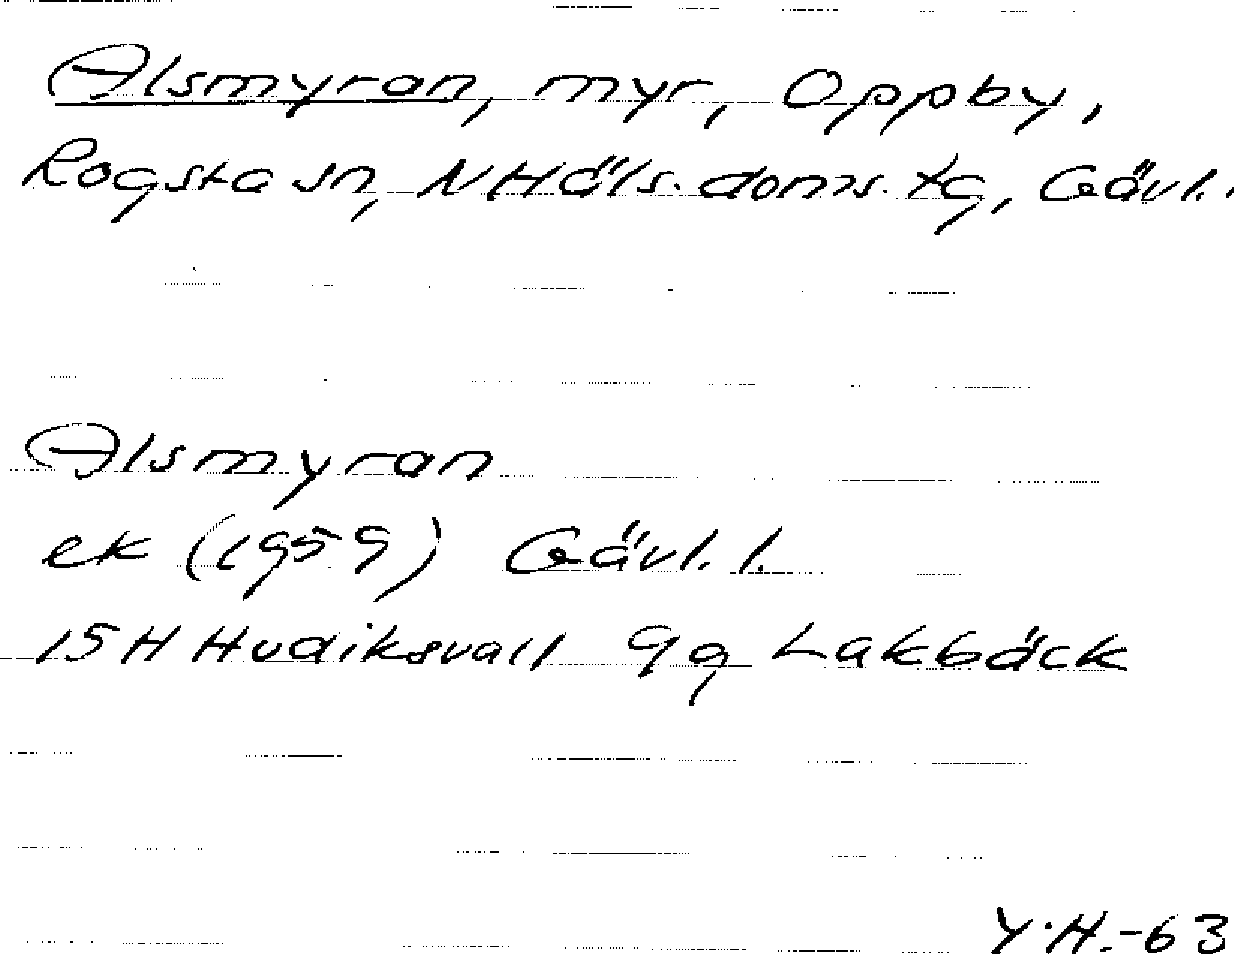 Alsmyran, myr, Oppby,
Rogsta sn, NHäls. doms. tg, Gävl.
Alsmyran
ek (1959) Gävl. l.
15H Hudiksvall 9g Lakbäck
Y.H.-63